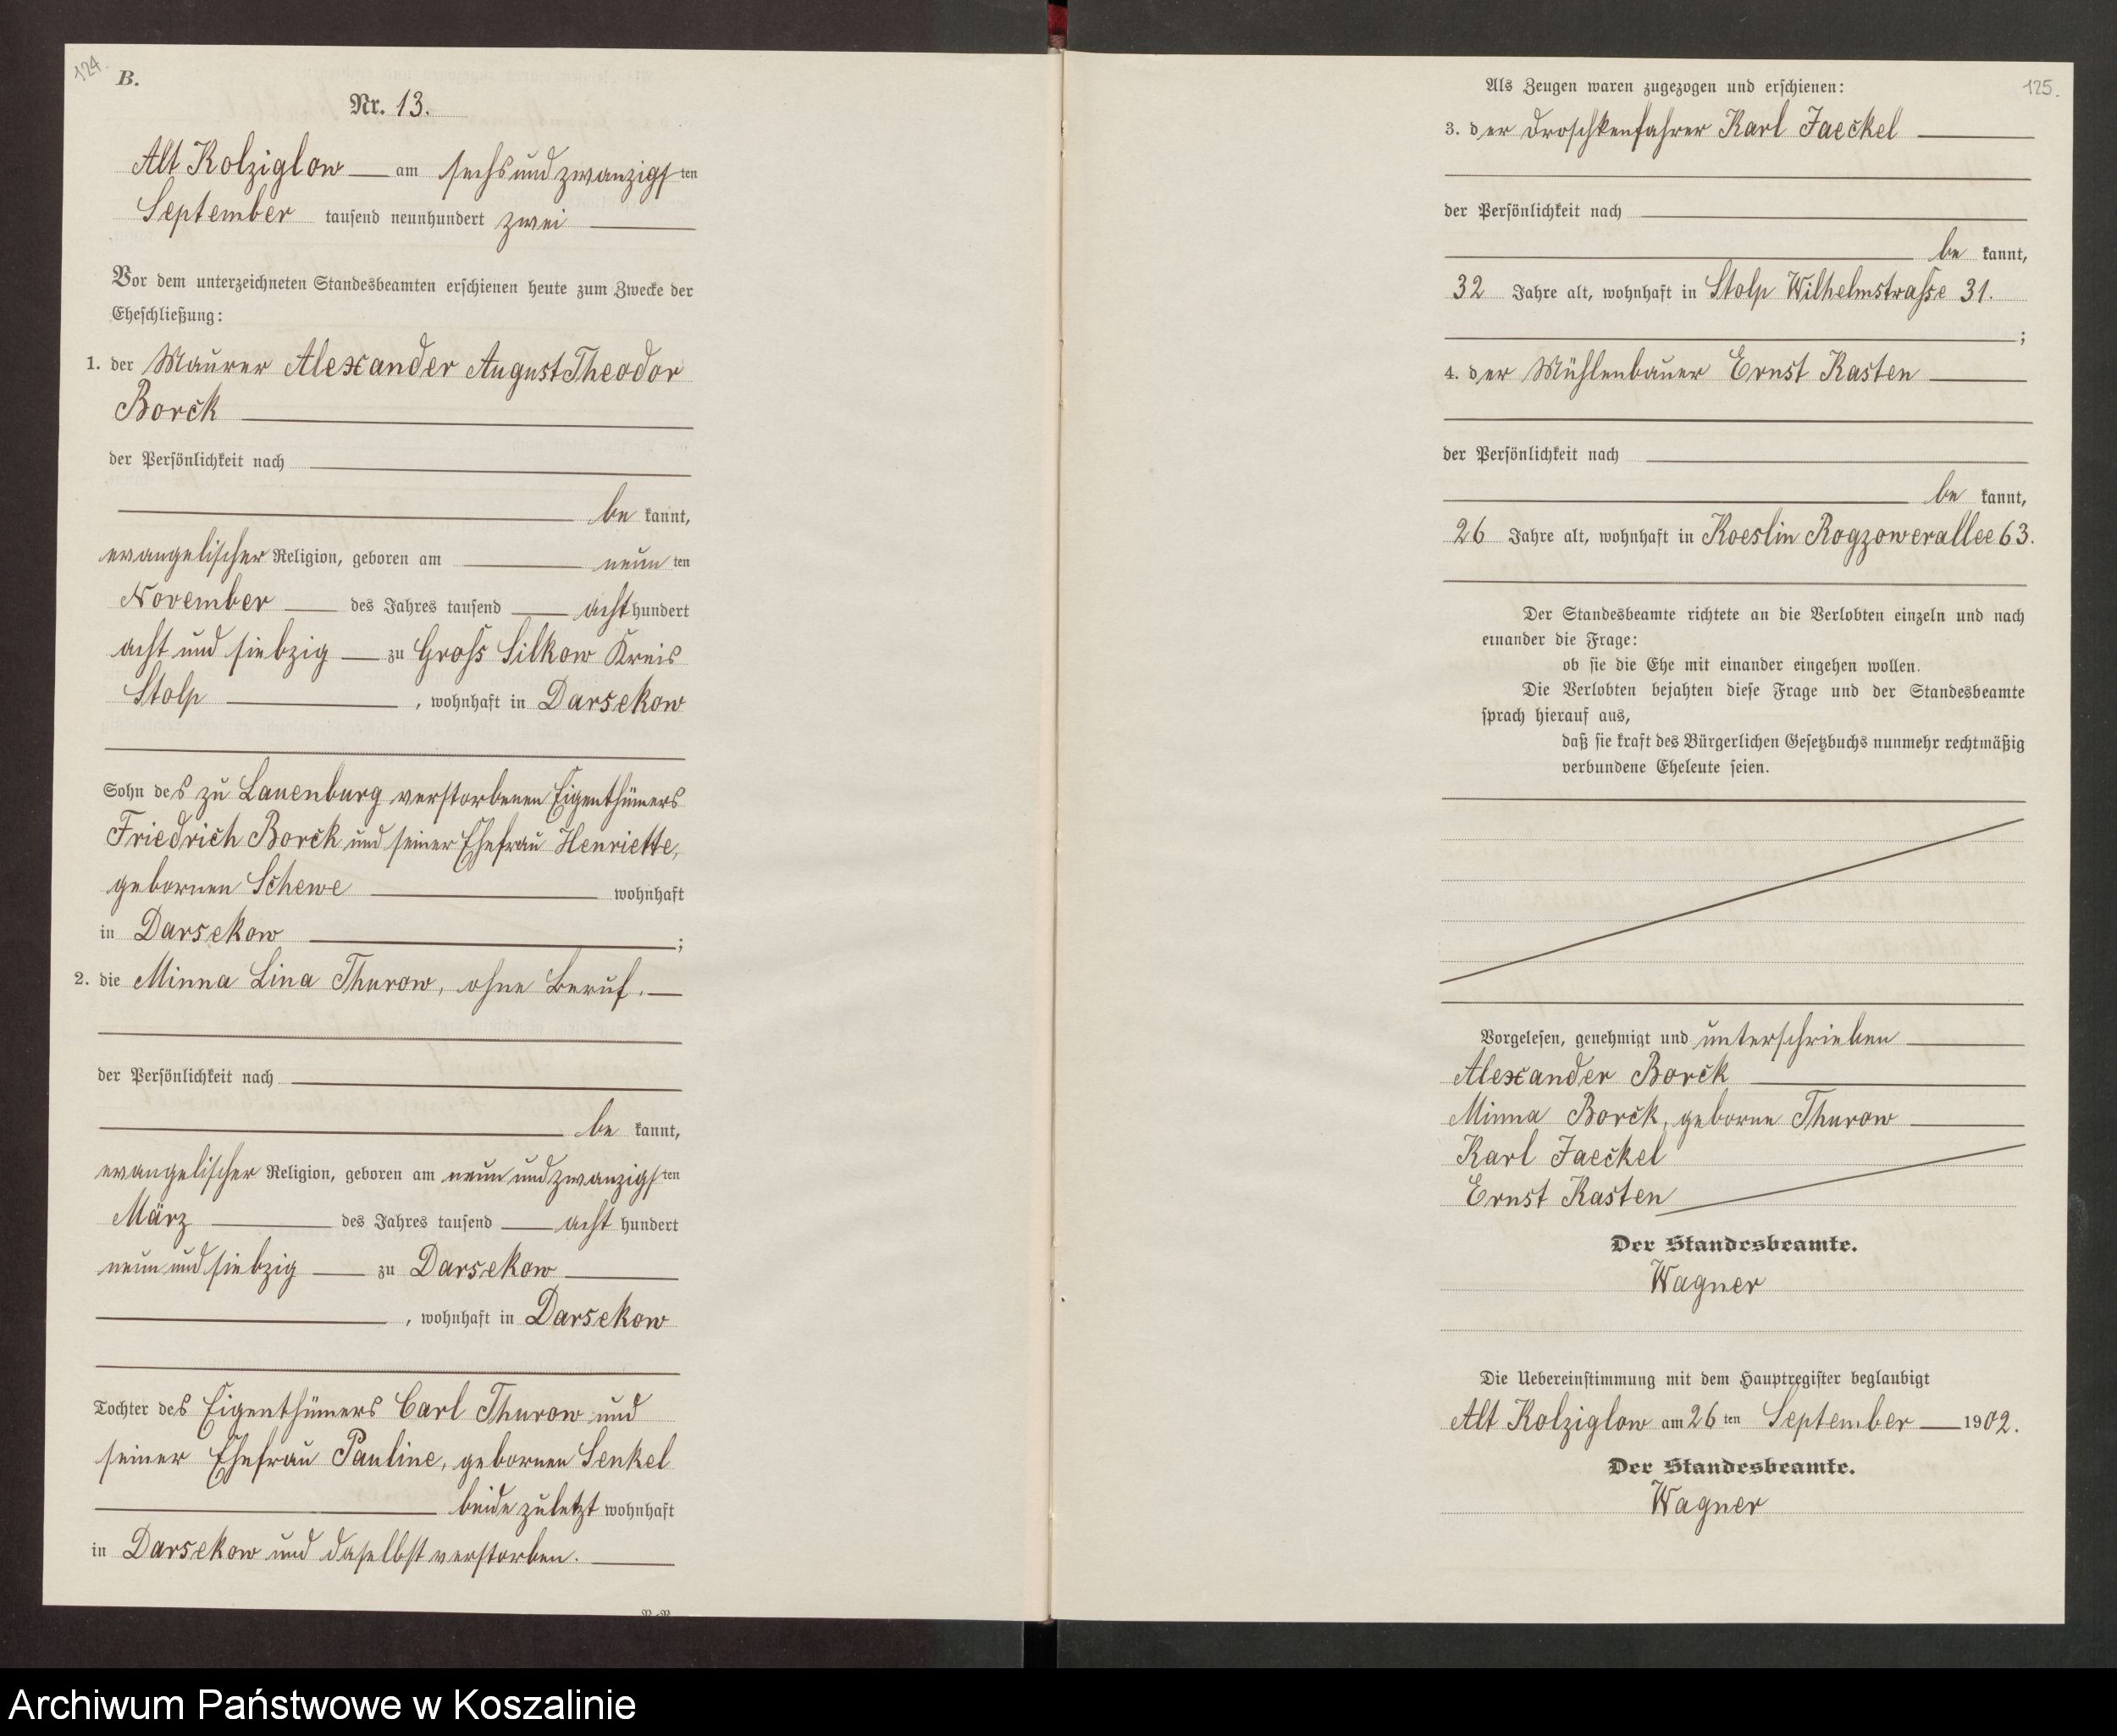 124.
B.
Nr. 13.
Alt Kolziglow am sechsundzwanzigsten
September tausend neunhundert zwei
Vor dem unterzeichneten Standesbeamten erschienen heute zum Zwecke der
Eheschließung:
1. der Maurer Alexander August Theodor
Borck
der Persönlichkeit nach
be kannt,
evangelischer Religion, geboren am neun ten
November des Jahres tausend acht hundert
acht und siebzig zu Gross Silkow Kreis
Stolp , wohnhaft in Darsekow
Sohn des zu Lauenburg verstorbenen Eigenthümers
Friedrich Borck und seiner Ehefrau Henriette,
gebornen Schewe wohnhaft
in Darsekow ;
2. die Minna Lina Thurow, ohne Beruf.
der Persönlichkeit nach
be kannt,
evangelischer Religion, geboren am neun und zwanzigsten
März des Jahres tausend acht hundert
neun und siebzig zu Darsekow
, wohnhaft in Darsekow
Tochter des Eigenthümers Carl Thurow und
seiner Ehefrau Pauline, gebornen Senkel
beide zuletzt wohnhaft
in Darsekow und daselbst verstorben.
125.
Als Zeugen waren zugezogen und erschienen:
3. der Droschkenfahrer Karl Jaeckel
der Persönlichkeit nach
be kannt,
32 Jahre alt, wohnhaft in Stolp Wilhelmstrasse 31.
;
4. der Mühlenbauer Ernst Kasten
der Persönlichkeit nach
be kannt,
26 Jahre alt, wohnhaft in Koeslin Rogzowerallee 63.
Der Standesbeamte richtete an die Verlobten einzeln und nach
einander die Frage:
ob sie die Ehe mit einander eingehen wollen.
Die Verlobten bejahten diese Frage und der Standesbeamte
sprach hierauf aus,
daß sie kraft des Bürgerlichen Gesetzbuchs nunmehr rechtmäßig
verbundene Eheleute seien.
Vorgelesen, genehmigt und unterschrieben
Alexander Borck
Minna Borck, geborne Thurow
Karl Jaeckel
Ernst Kasten
Der Standesbeamte.
Wagner
Die Uebereinstimmung mit dem Hauptregister beglaubigt
Alt Kolziglow am 26 ten September 1902.
Der Standesbeamte.
Wagner
Archiwum Państwowe w Koszalinie